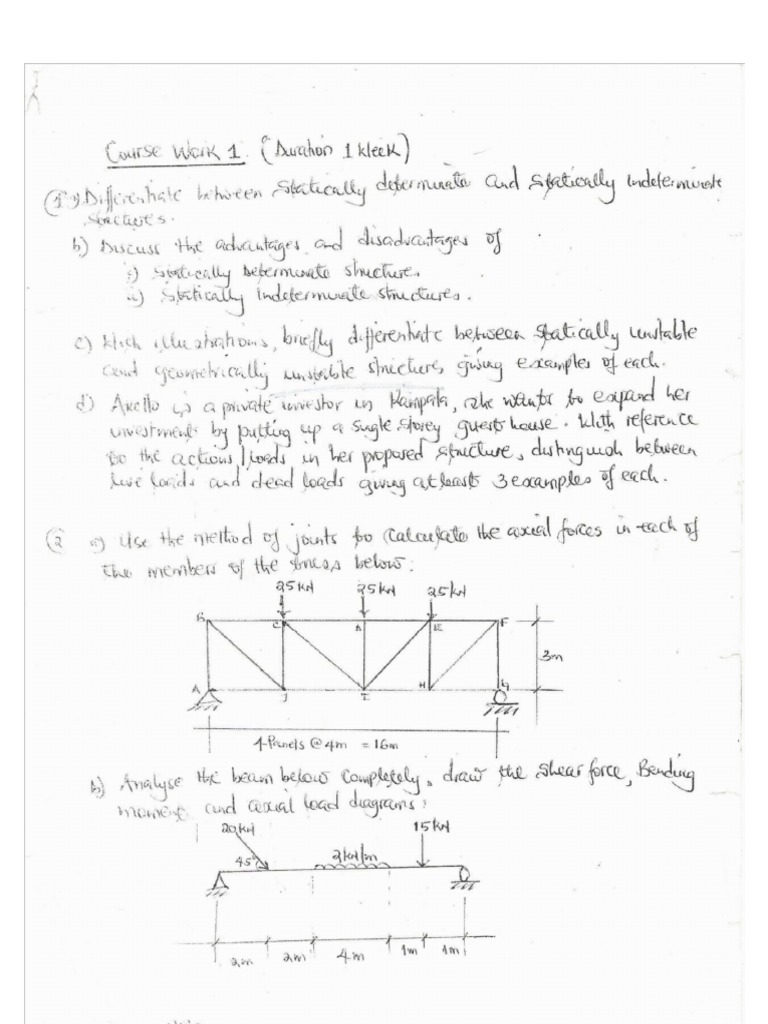 Course Work 1. (Duration 1 Week)
(1 a) Differentiate between statically determinate and statically indeterminate
structures.
b) Discuss the advantages and disadvantages of
i) Statically Determinate structures.
ii) Statically indeterminate structures.
c) With illustrations, briefly differentiate between statically unstable
and geometrically unstable structures, giving examples of each.
d) Akello is a private investor in Kampala, she wants to expand her
investments by putting up a single storey guest house. With reference
to the actions/loads in her proposed structure, distinguish between
live loads and dead loads giving at leasts 3 examples of each.
(2 a) Use the method of joints to calculate the axial forces in each of
the members of the truss below:
25kN 25kN 25kN
B C D E F
3m
A J I H G
4-Panels @ 4m = 16m
b) Analyse the beam below completely, draw the shear force, Bending
moment and axial load diagrams:
20kN 15kN
45° 2kN/m
2m 2m 4m 1m 1m